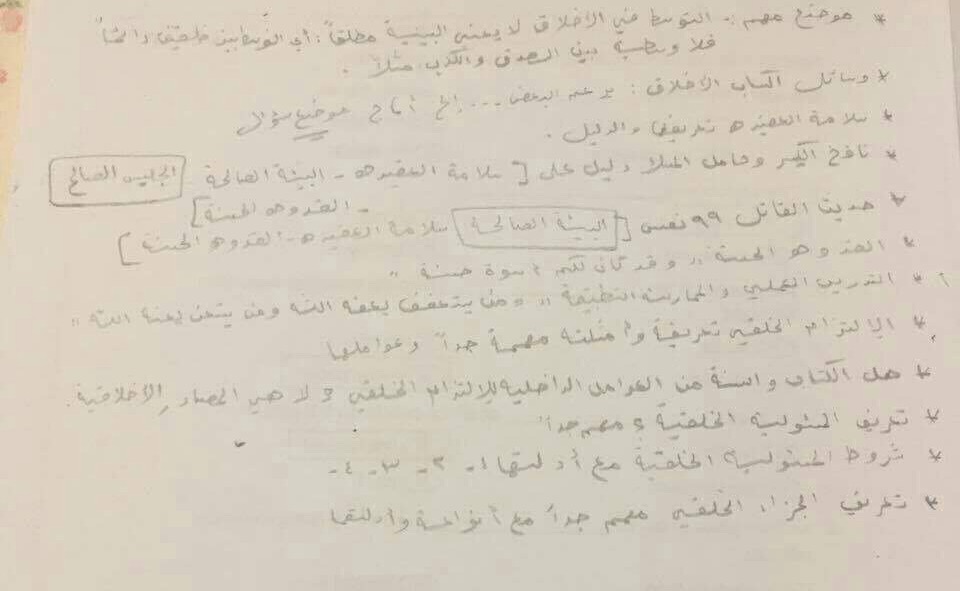 * موضع مهم :- التوسط في الأخلاق لا يعني البينية مطلقاً : أي التوسط بين خلقين دائماً
فلا وسطية بين الصدق والكذب مثلاً .
* وسائل اكتساب الأخلاق : يدعم البعض ... إلخ موضع سؤال
* سلامة العقيده تعريفها والدليل .
* نافخ الكير وحامل المسك دليل على [ سلامة العقيده - البيئة الصالحة الجليس الصالح
- القدوه الحسنة ]
* حديث القاتل ٩٩ نفس [ البيئة الصالحة سلامة العقيده - القدوه الحسنة ]
* القدوه الحسنة " وقد كان لكم أسوة حسنة "
* التدريب العملي والممارسة التطبيقية " ومن يتعفف يعفه الله ومن يستغن يغنه الله "
* الإلتزام الخلقي تعريفة وأمثلته مهمة جداً وعواملها
* هل الكتاب والسنة من العوامل الداخلية للإلتزام الخلقي ؟ لا هي المصادر الأخلاقية .
* تعريف المسئولية الخلقية ؟ مهم جداً
* شروط المسئولية الخلقية مع أدلتها ١- ٢- ٣- ٤-
* تعريف الجزاء الخلقي مهم جداً مع أنواعه وأدلتها